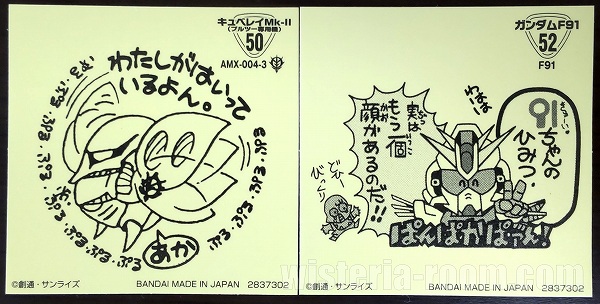 キュベレイMk-II
(プルツー専用機)
50
AMX-004-3
わたしがはいって
いるよん。
ぷよる ぷよる
あか
©創通・サンライズ
BANDAI MADE IN JAPAN 2837302
ガンダムF91
52
F91
91ちゃんの
ひみつ。
わはは
実はじっ
もう一個いっこ
顔かおがあるのだ!!
どひー
びっくり
ぱんぱかぱーん!
©創通・サンライズ
BANDAI MADE IN JAPAN 2837302
wisteria-room.com